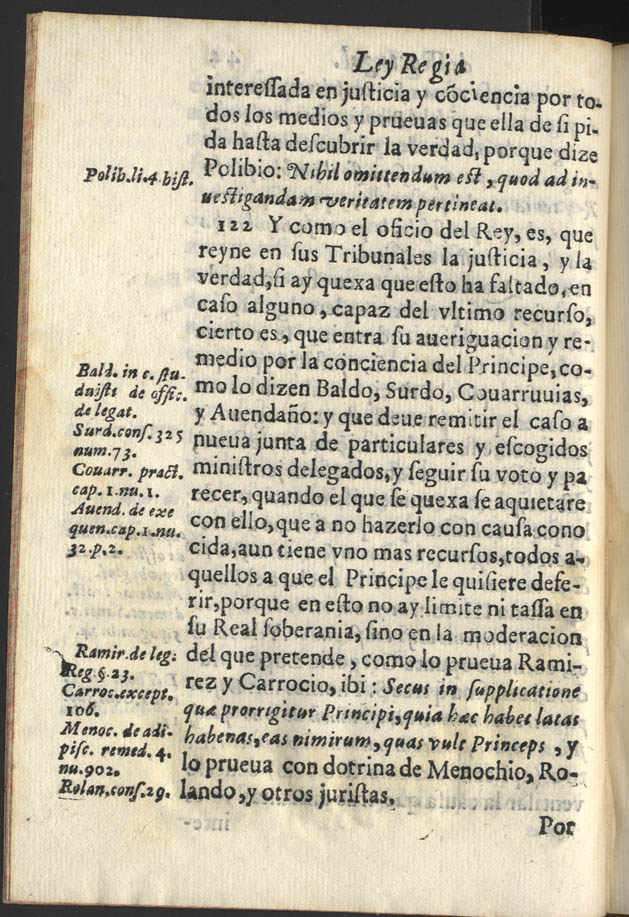 Ley Regia
interessada en justicia y cõciencia por to-
dos los medios y prueuas que ella de si pi-
da hasta descubrir la verdad, porque dize
Polib.li.4.hist.
Polibio: Nihil omittendum est, quod ad in-
uestigandam veritatem pertineat.
122 Y como el oficio del Rey, es, que
reyne en sus Tribunales la justicia, y la
verdad, si ay quexa que esto ha faltado, en
caso alguno, capaz del vltimo recurso,
cierto es, que entra su aueriguacion y re-
medio por la conciencia del Principe, co-
mo lo dizen Baldo, Surdo, Couarruuias,
y Auendaño: y que deue remitir el caso a
nueua junta de particulares y escogidos
ministros delegados, y seguir su voto y pa
recer, quando el que se quexa se aquietare
con ello, que a no hazerlo con causa cono
cida, aun tiene vno mas recursos, todos a-
quellos a que el Principe le quisiere defe-
rir, porque en esto no ay limite ni tassa en
su Real soberania, sino en la moderacion
del que pretende, como lo prueua Rami-
rez y Carrocio, ibi: Secus in supplicatione
quæ prorrigitur Principi, quia hæc habet latas
habenas, eas nimirum, quas vult Princeps, y
lo prueua con dotrina de Menochio, Ro-
lando, y otros juristas.
Por
Bald. in c. stu-
duisti de offic.
de legat.
Surd.cons.325
num.73.
Couarr. pract.
cap.1.nu.1.
Auend. de exe
quen.cap.1.nu.
32.p.2.
Ramir.de leg:
Reg §.23.
Carroc.except.
106.
Menoc. de adi-
pisc. remed.4.
nu.902.
Rolan.cons.29.